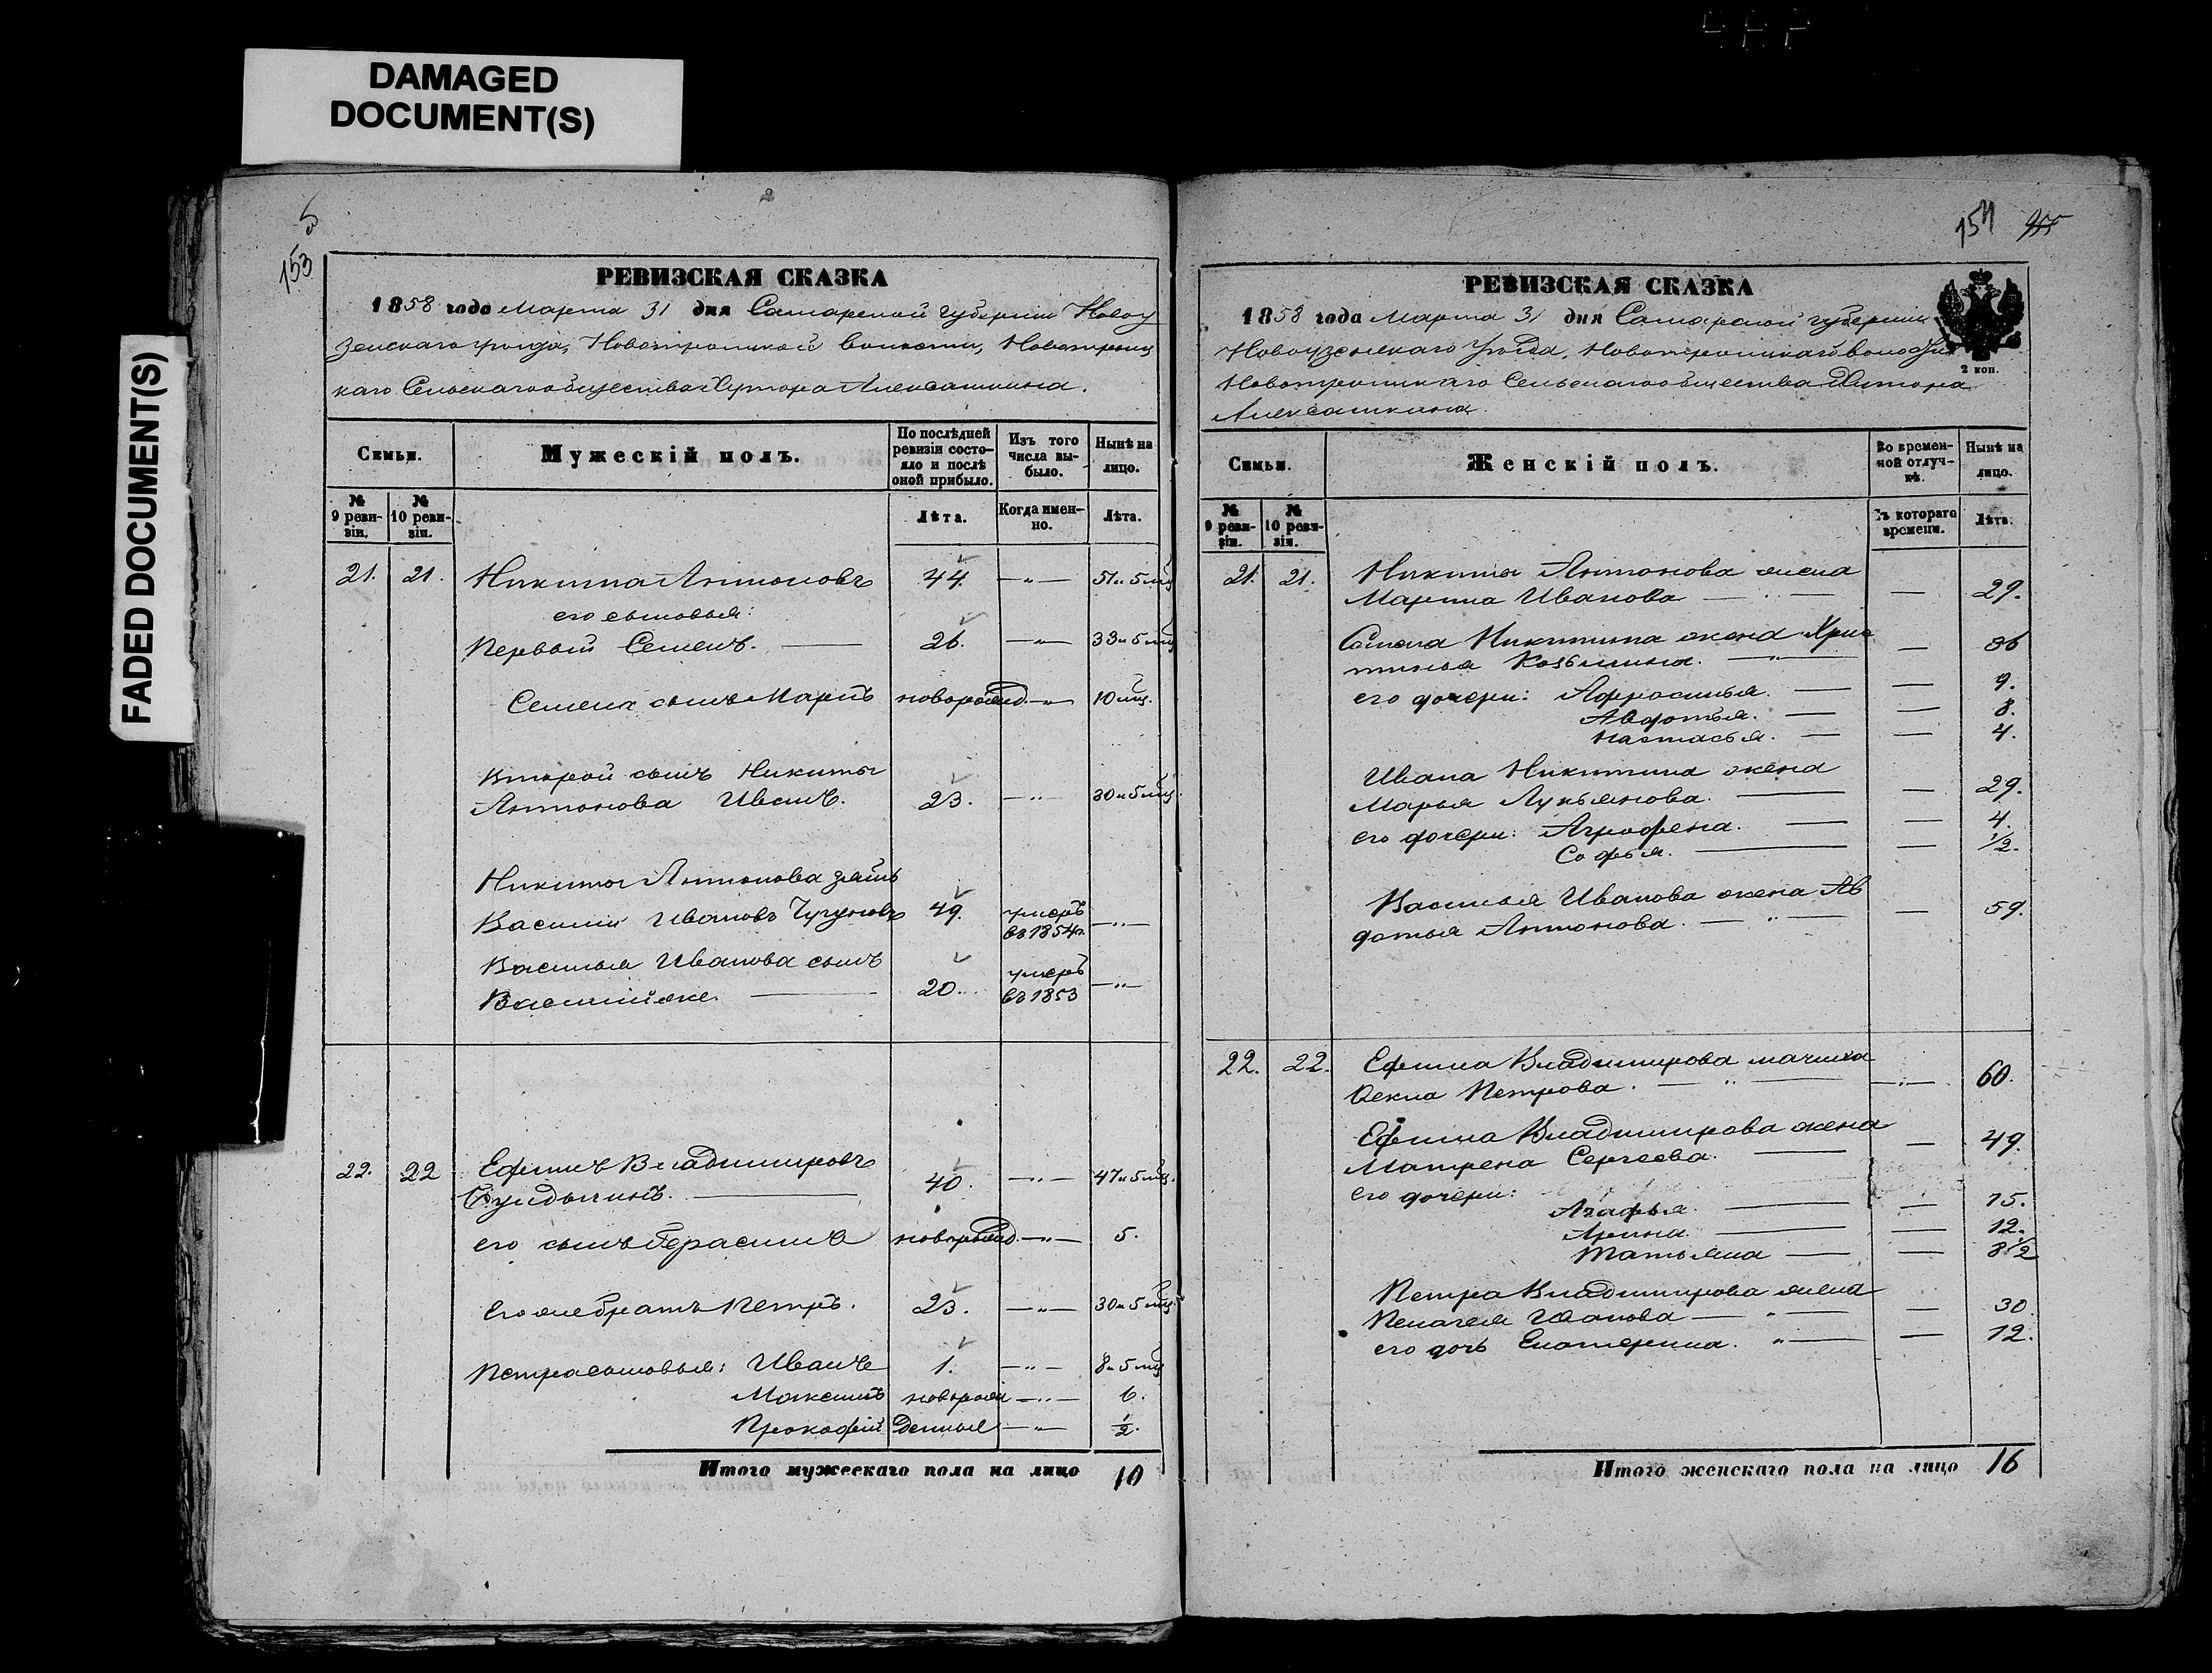 DAMAGED
DOCUMENT(S)
FADED DOCUMENT(S)
153
РЕВИЗСКАЯ СКАЗКА
1858 года Марта 31 дня Самарской губернии Новоу
зенскаго уезда, Новотроицкой волости, Новотроиц
каго Сельскаго общества Хутора Алексашкина.
Семьи. Мужескій полъ. По послѣдней ревизіи состояло и послѣ оной прибыло. Изъ того числа выбыло. Нынѣ на лицо.
№ 9 ревизіи. № 10 ревизіи. Лѣта. Когда именно. Лѣта.
21. 21. Никита Антоновъ 44. —"— 51 и 5 мц
его сыновья:
Первый Семенъ. 26. —"— 33 и 5 мц
Семена сынъ новорожд. —"— 10 мц.
Второй сынъ Никиты
Антонова Иванъ. 23. —"— 30 и 5 мц.
Никиты Антонова зять
Василий Ивановъ Чугуновъ 49. умеръ въ 1854 г. —"—
Василья Иванова сынъ
Василий же. 20. умеръ въ 1853 —"—
22. 22 Ефимъ Владимировъ
40. —"— 47 и 5 мц.
его сынъ Герасимъ новорожд. —"— 5.
Его же братъ Петръ. 23. —"— 30 и 5 мц.
Петра сыновья: Иванъ 1. —"— 8 и 5 мц
Максимъ новорож —"— 6.
Прокофий денные —"— 1/2.
Итого мужескаго пола на лицо 10
154
РЕВИЗСКАЯ СКАЗКА
1858 года Марта 31 дня Самарской губернии
Новоузенскаго уезда, Новотроицкой волости
Новотроицкаго Сельскаго общества Хутора
2 коп.
Алексашкина.
Семьи. Женскій полъ. Во временной отлучкѣ. Нынѣ на лицо.
№ 9 ревизіи. № 10 ревизіи. Съ котораго времени. Лѣта.
21. 21. Никиты Антонова жена
Марина Иванова — 29.
Семена Никитина жена Хрис
тинья Козьмина. — 36
его дочери: Афросинья. — 9.
Авдотья. — 8.
Настасья. — 4.
Ивана Никитина жена
Марья Лукьянова. — 29.
его дочери: Аграфена. — 4.
Софья. — 1/2.
Василья Иванова жена Ав
дотья Антонова. — 59.
22. 22. Ефима Владимирова мачиха
Фекла Петрова. —"— 60.
Ефима Владимирова жена
Матрена Сергеева. — 49.
его дочери:
Агафья. — 15.
Арина. — 12.
Татьяна — 8 1/2
Петра Владимирова жена
Пелагея Иванова — 30.
его дочь Екатерина. — 12.
Итого женскаго пола на лицо 16